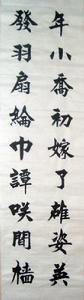 年小喬初嫁了雄姿英
發羽扇綸巾譚咲間檣